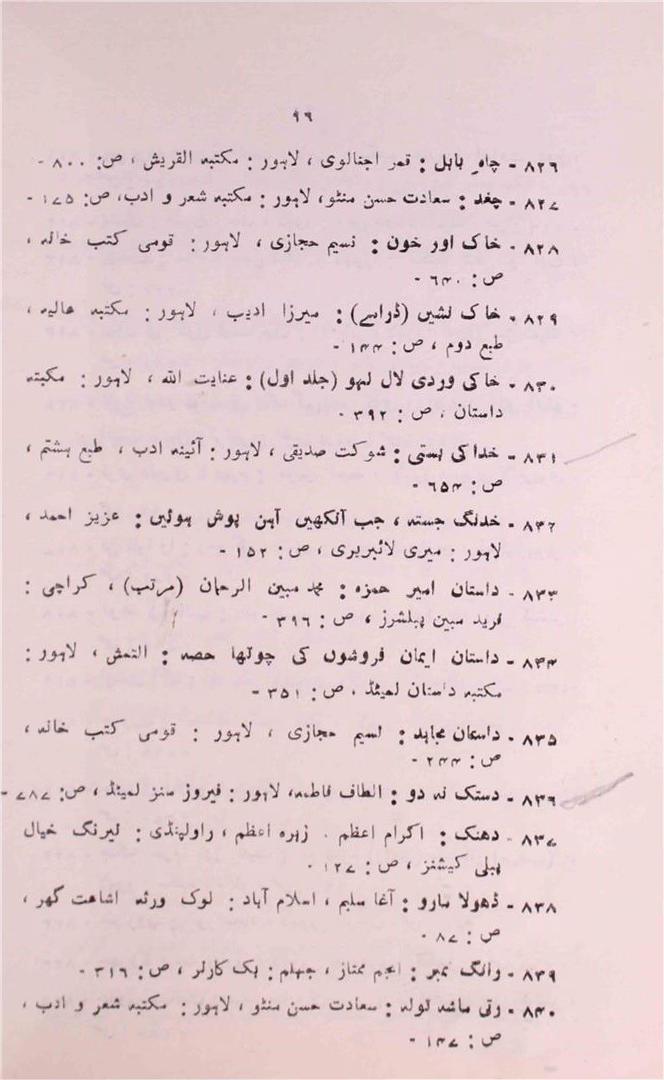 ۹۶
۸۲۶ - چاہ بابل : قمر اجنالوی ، لاہور : مکتبہ القریش ، ص: ۸۰۰ -
۸۲۷ - چغد : سعادت حسن منٹو، لاہور : مکتبہ شعر و ادب، ص: ۱۷۵ -
۸۲۸ - خاک اور خون : نسیم حجازی ، لاہور : قومی کتب خانہ ،
ص : ۶۴۰ -
۸۲۹ - خاک نشیں (ڈرامے) : میرزا ادیب ، لاہور : مکتبہ عالیہ ،
طبع دوم ، ص : ۱۴۴ -
۸۳۰ - خاکی وردی لال لہو (جلد اول) : عنایت اللہ ، لاہور : مکتبہ
داستان ، ص : ۳۹۲ -
۸۳۱ - خدا کی بستی : شوکت صدیقی ، لاہور : آئینہ ادب ، طبع ہشتم ،
ص : ۶۵۴ -
۸۳۲ - خدنگ جستہ ، جب آنکھیں آہن پوش ہوئیں : عزیز احمد ،
لاہور : میری لائبریری ، ص : ۱۵۲ -
۸۳۳ - داستان امیر حمزہ : محمد مبین الرحمان (مرتب) ، کراچی :
فرید مبین پبلشرز ، ص : ۳۹۶ -
۸۳۴ - داستان ایمان فروشوں کی چوتھا حصہ : التمش ، لاہور :
مکتبہ داستان لمیٹڈ ، ص : ۳۵۱ -
۸۳۵ - داستان مجاہد : نسیم حجازی ، لاہور : قومی کتب خانہ ،
ص : ۲۴۴ -
۸۳۶ - دستک نہ دو : الطاف فاطمہ، لاہور : فیروز سنز لمیٹڈ ، ص: ۷۸۷ -
۸۳۷ - دھنک : اکرام اعظم . زہرہ اعظم ، راولپنڈی : نیرنگ خیال
پبلی کیشنز ، ص : ۱۲۷ -
۸۳۸ - ڈھولا مارو : آغا سلیم ، اسلام آباد : لوک ورثہ اشاعت گھر ،
ص : ۸۷ -
۸۳۹ - رانگ نمبر : انجم ممتاز ، جہلم : بک کارنر ، ص : ۳۱۶ -
۸۴۰ - رتی ماشہ تولہ : سعادت حسن منٹو ، لاہور : مکتبہ شعر و ادب ،
ص : ۱۴۷ -